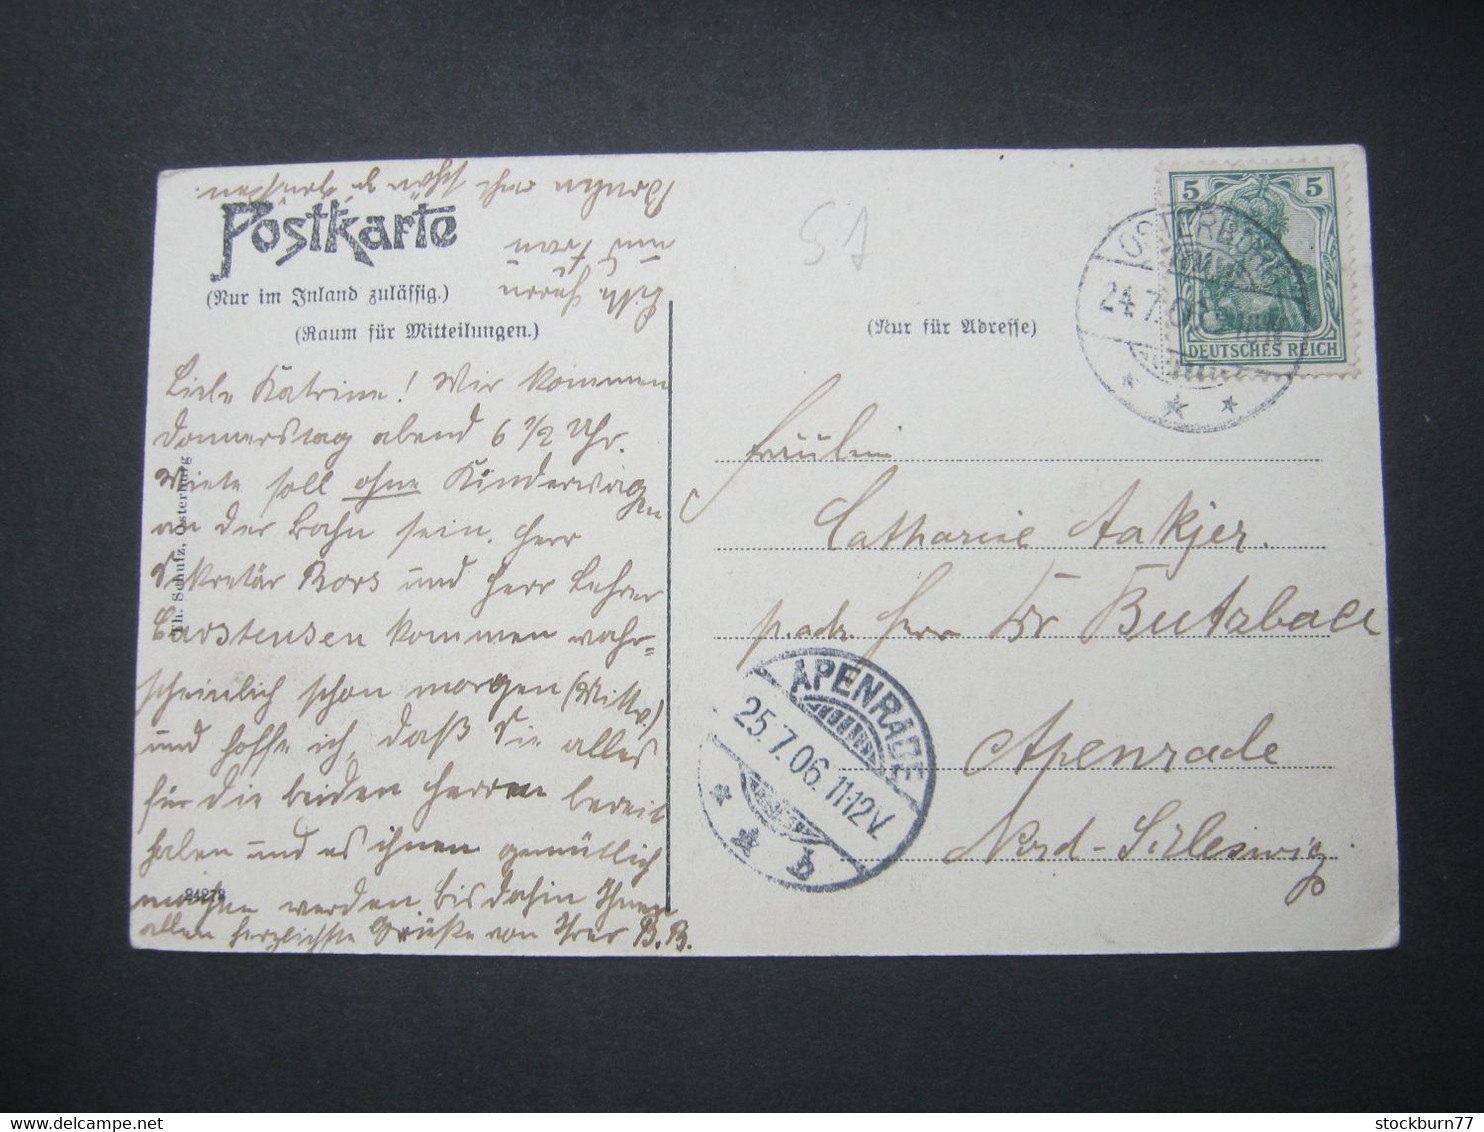 Postkarte
(Nur im Inland zulässig.)
(Raum für Mitteilungen.)
(Nur für Adresse)
Liebe Katrine! Wir kommen
Donnerstag abend 6 1/2 Uhr.
Miele soll ohne Kinderwagen
an der Bahn sein. Herr
Sekretär Bors und Herr Lehrer
Carstensen kommen wahr-
scheinlich schon morgen (Mittw.)
und hoffe ich, daß Sie alles
für die beiden Herren bereit
haben und es ihnen gemütlich
machen werden bis dahin Ihnen
allen herzlichste Grüße von Ihrer B.B.
Bitte Herrn
und Frau
Th. Schulz, Osterburg
24278
51
5 5
DEUTSCHES REICH
OSTERBURG
24.7.06
Fräulein
Catharine Aakjer.
p. adr. Herr Dr Butzbach
Apenrade
Nord-Schleswig
APENRADE
25.7.06.11-12V.
b
stockburn77